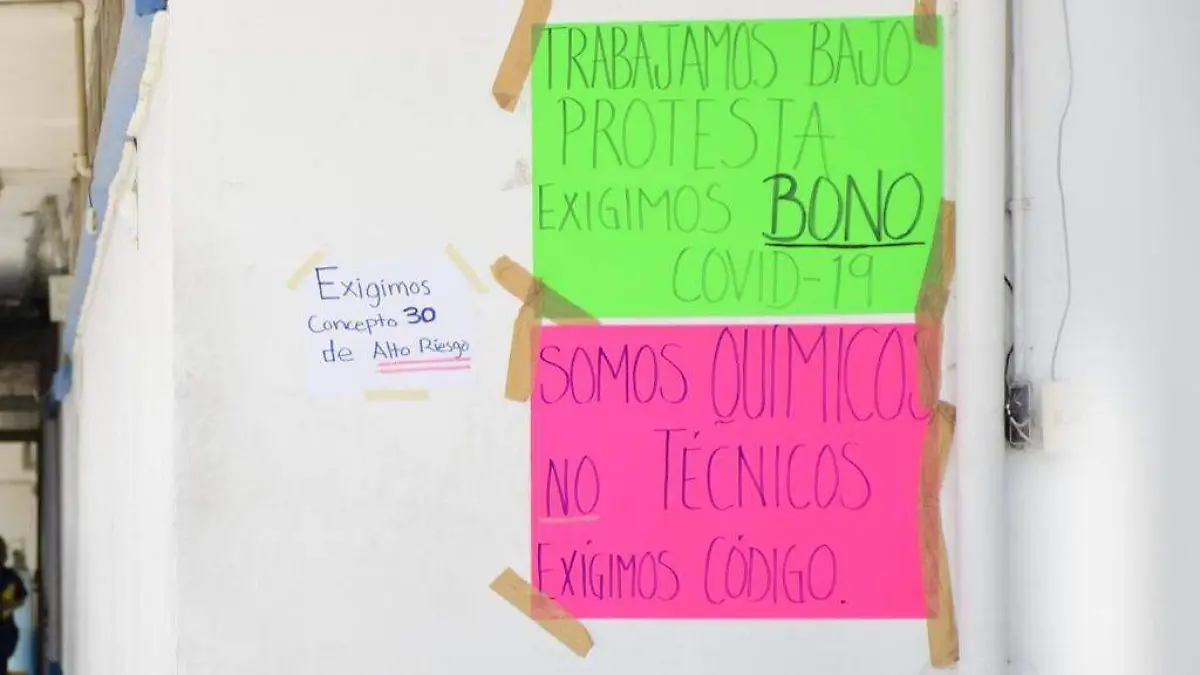 TRABAJAMOS BAJO
PROTESTA
EXIGIMOS BONO
COVID-19
Exigimos
Concepto 30
de Alto Riesgo
SOMOS QUÍMICOS
NO TÉCNICOS
EXÍGIMOS CÓDIGO.